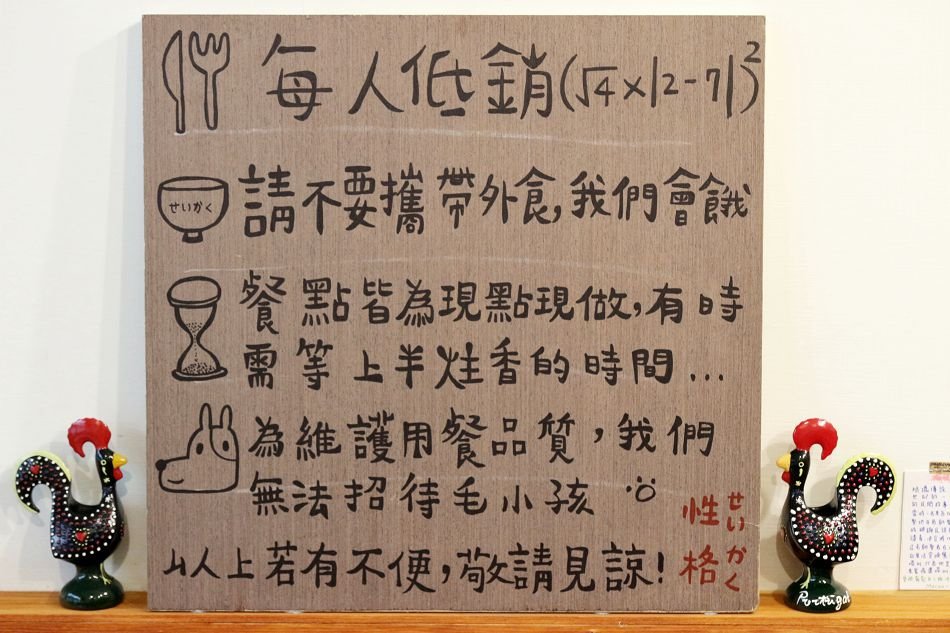 每人低銷(√4×|2-7|)²
せいかく
請不要攜帶外食,我們會餓
餐點皆為現點現做,有時
需等上半炷香的時間...
為維護用餐品質,我們
無法招待毛小孩
以上若有不便,敬請見諒!
性格
せいかく
Portugal